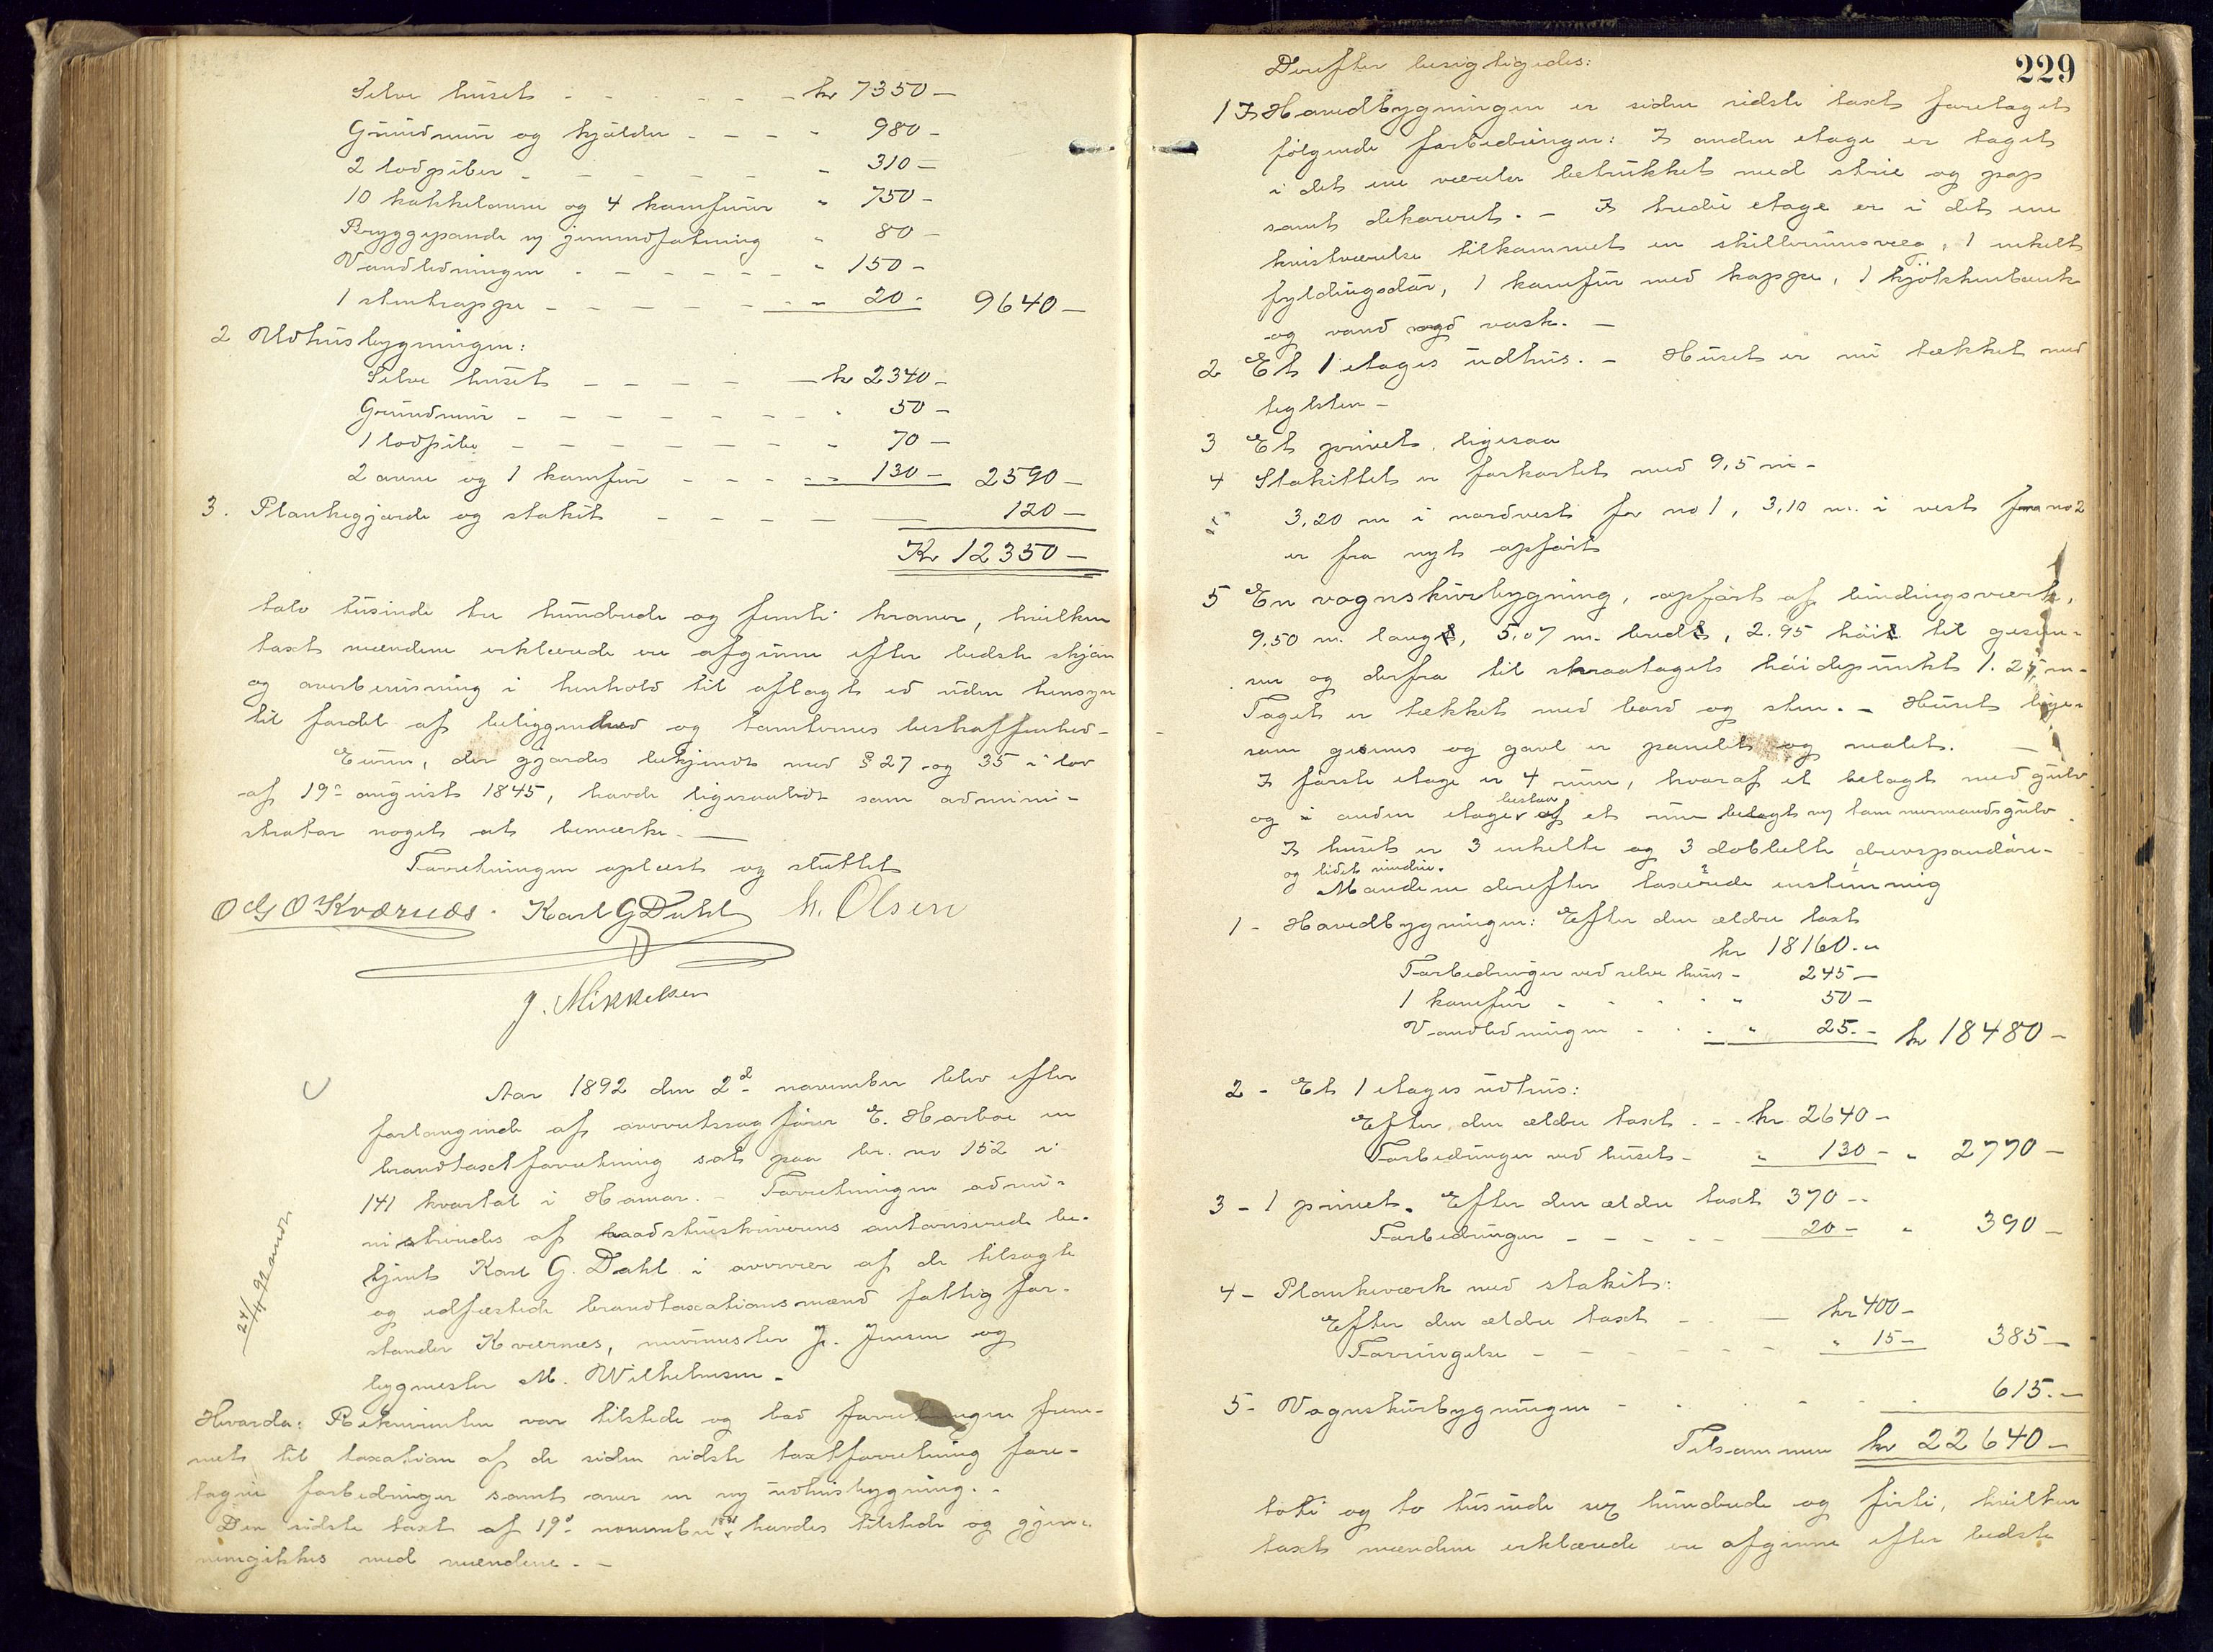 Selve huset - - - - - - kr 7350 -
Grundmur og kjælder - - - - 980 -
2 lodpiber - - - - - - " 310 -
10 kakkelovne og 4 komfurer " 750 -
Bryggepande m jernindfatning " 80 -
Vandledningen - - - - - - " 150 -
1 stentrappe - - - - - - " 20 - 9640 -
2 Udhusbygningen:
Selve huset - - - - - kr 2340 -
Grundmur - - - - - - - " 50 -
1 lodpibe - - - - - - - " 70 -
2 ovne og 1 komfur - - - - " 130 - 2590 -
3. Plankegjærde og stakit - - - - - 120 -
Kr 12350 -
tolv tusinde tre hundrede og femti kroner, hvilken
taxt mændene erklærede at afgivne efter bedste skjøn
og overbevisning i henhold til aflagt ed uden hensyn
til fordel af beliggenhed og tomternes beskaffenhed -
Eieren, der gjordes bekjendt med § 27 og 35 i lov
af 19de august 1845, havde ligesaalidt som admini-
strator noget at bemærke. -
Forretningen oplæst og sluttet
O G O Kværnes. Karl G Dahl h. Olsen
J. Mikkelsen
Aar 1892 den 2d november blev efter
forlangende af overretssagfører E. Harboe en
brandtaxtforretning sat paa br. no 152 i
141 kvartal i Hamar. - Forretningen admi-
nistreredes af raadstueskriverens autoriserede be-
tjent Karl G. Dahl i overvær af de tilsagte
og edfæstede brandtaxationsmænd fattigfor-
stander Kværnes, murmester J. Jensen og
bygmester M. Wilhelmsen -
24/11 92
Hvorda: Rekvirenten var tilstede og bad forretningen frem-
met til taxation af de siden sidste taxtforretning fore-
tagne forbedringer samt over en ny udhusbygning. -
Den sidste taxt af 19d november havdes tilstede og gjen-
nemgikkes med mændene. -
229
Derefter besigtigedes:
1 I Hovedbygningen er siden sidste taxt foretaget
følgende forbedringer: I anden etage er taget
i det ene værelse betrukket med strie og pap
samt dekoreret. - I tredie etage er i det ene
kvistværelse tilkommet en skillerumsvæg, 1 enkelt
fyldingsdør, 1 komfur med kappe, 1 kjökkenbænk
og vand med vask. -
2 Et 1 etages udhus. - Huset er nu tækket med
teglsten -
3 Et privet, ligesaa
4 Stakittet er forkortet med 9,5 m -
3,20 m i nordvest for no 1, 3,10 m. i vest for no 2
er fra nyt opført
5 En vognskurbygning, opført af bindingsværk,
9.50 m. langt, 5.07 m. bredt, 2.95 höit til gesim-
sen og derfra til skraatagets höidepunkt 1.25 m -
Taget er tækket med bord og sten. - Huset lige-
som gesims og gavl er panelt og malet. -
I første etage er 4 rum, hvoraf et belagt med gulv
og i anden etage bestaar af et rum belagt m tømmermandsgulv
I huset er 3 enkelte og 3 dobbelte drevspanddøre -
og lidet vindu.
Mændene derefter taxerede enstemmig
1 - Hovedbygningen: Efter den ældre taxt
kr 18160. "
Forbedringer ved selve huset - 245 -
1 komfur - - - - - " 50 -
Vandledningen - - - " 25. - kr 18480 -
2 - Et 1 etages udhus:
Efter den ældre taxt . - - kr 2640 -
Forbedringer ved huset - " 130 - " 2770 -
3 - 1 privet. Efter den ældre taxt 370 -
Forbedringer - - - - - 20 - " 390 -
4 - Plankeværk med stakit:
Efter den ældre taxt - - - kr 400 -
Forringelse - - - - - - " 15 - 385 -
5 - Vognskurbygningen - - - - - - 615. -
Tilsammen kr 22640 -
toti og to tusinde sex hundrede og firti, hvilken
taxt mændene erklærede at afgivne efter bedste